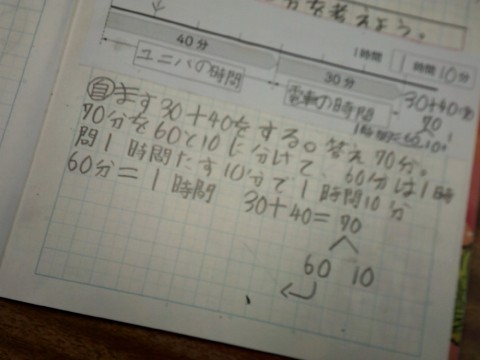 分を考えよう。
40分
30分
1時間
1時間10分
ユニバの時間
電車の時間
30+40=70
㊂ます30+40をする。答え70分。
70分を60と10に分けて、60分は1時
間1時間たす10分で1時間10分
60分=1時間
30+40=70
60 10